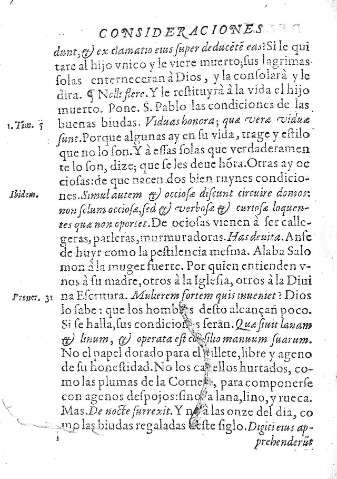 CONSIDERACIONES
dunt, & exclamatio eius super deducẽtẽ eas: Si le qui
tare al hijo vnico y le viere muerto; sus lagrimas
solas enterneceran à Dios, y la consolarà y le
dira. ¶ Nolli flere. Y le restituyrà à la vida el hijo
muerto. Pone. S. Pablo las condiciones de las
1. Tim. 5 buenas biudas. Viduas honora; quæ veræ viduæ
sunt. Porque algunas ay en su vida, trage y estilo
que no lo son. Y à essas solas que verdaderamen
te lo son, dize; que se les deue hõra. Otras ay o-
ciosas: de que nacen dos bien ruynes condicio
Ibidem. nes. Simul autem & occiosæ discunt circuire domos:
non solum occiosæ, sed & verbosæ & curiosæ loquen-
tes quæ non oportet. De ociosas vienen à ser calle-
geras, parleras, murmuradoras. Has deuita. Anse
de huyr como la pestilencia mesma. Alaba Salo
mon à la muger fuerte. Por quien entienden v-
nos à su madre, otros à la Iglesia, otros à la Diui
Prouer. 31 na Escritura. Mulierem fortem quis inueniet? Dios
lo sabe: que los hombres desto alcançan poco.
Si se halla, sus condiciones seran. Quæsiuit lanam
& linum, & operata est consilio manuum suarum.
No el papel dorado para el villete, libre y ageno
de su honestidad. No los cabellos hurtados, co-
mo las plumas de la Corneja, para componerse
con agenos despojos: sino la lana, lino, y rueca.
Mas. De nocte surrexit. Y no à las onze del dia, co
mo las biudas regaladas deste siglo. Digiti eius ap-
prehenderũt